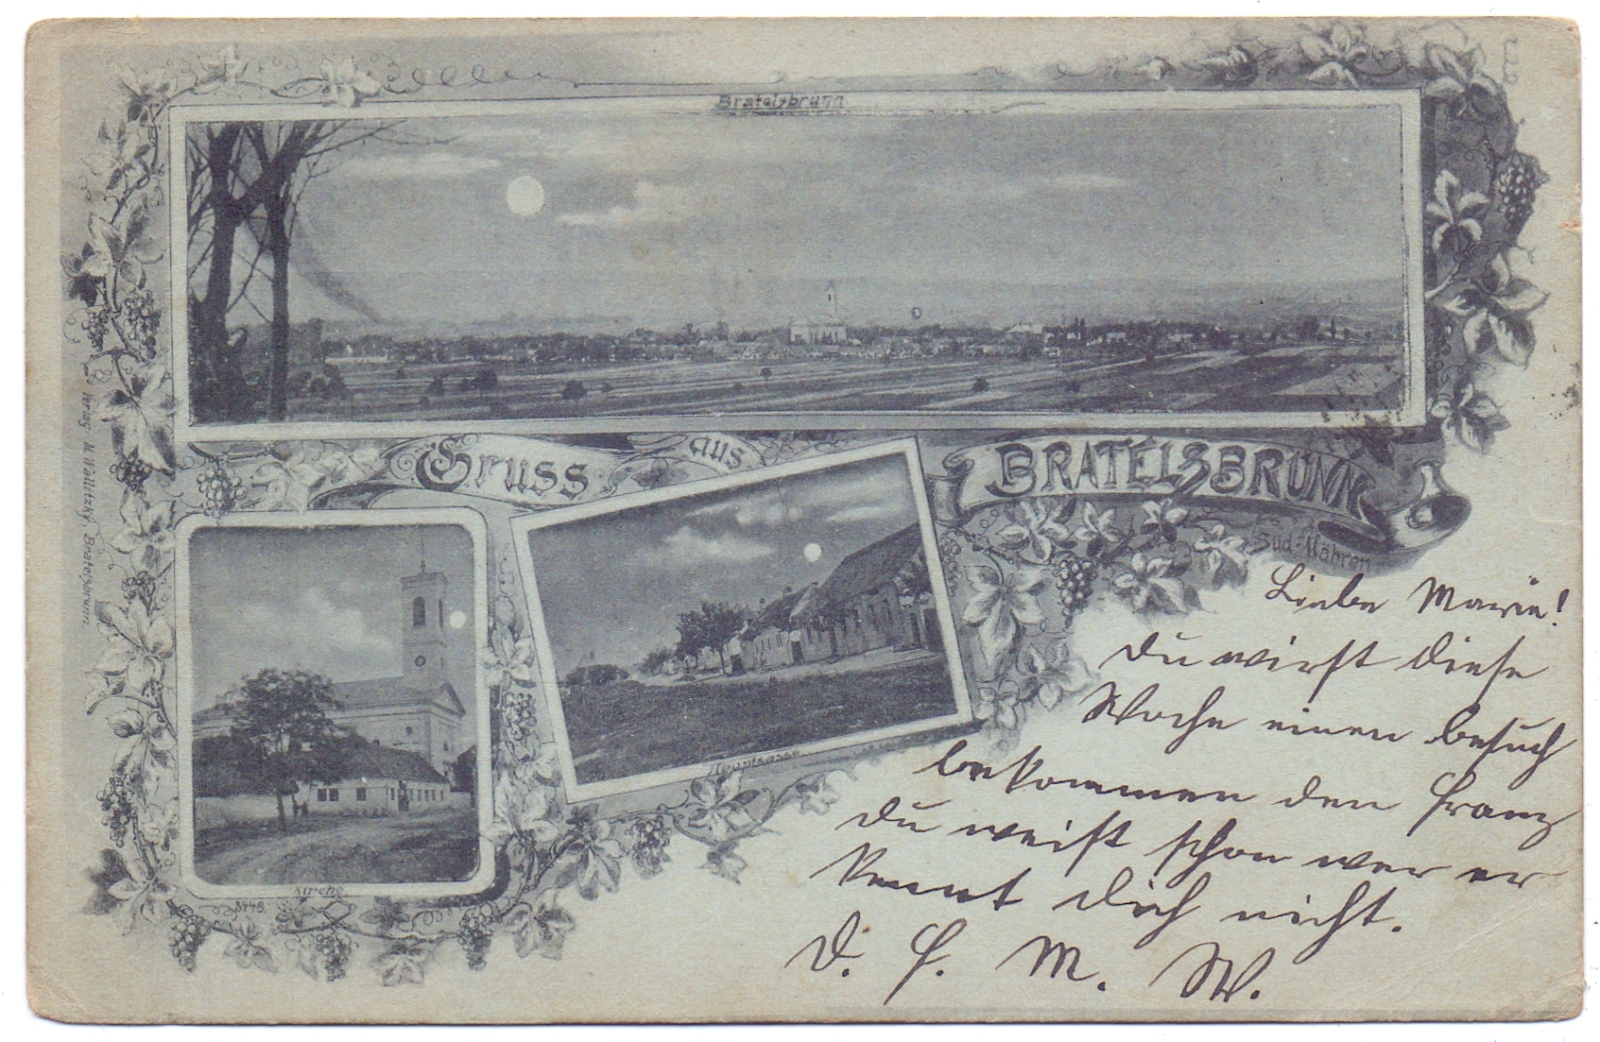 Bratelsbrunn.
Gruss aus BRATELSBRUNN
Süd-Mähren
Verlag M. Wallitzky, Bratelsbrunn.
Hauptgasse
Kirche.
Liebe Marie!
Du wirst diese
Woche einen besuch
bekommen den Franz
Du weist schon wer er
kennt dich nicht.
D. F. M. W.